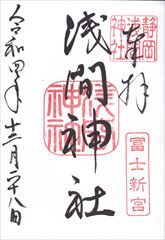 奉拝
静岡浅間神社
冨士新宮
浅間神社
令和四年十二月二十八日